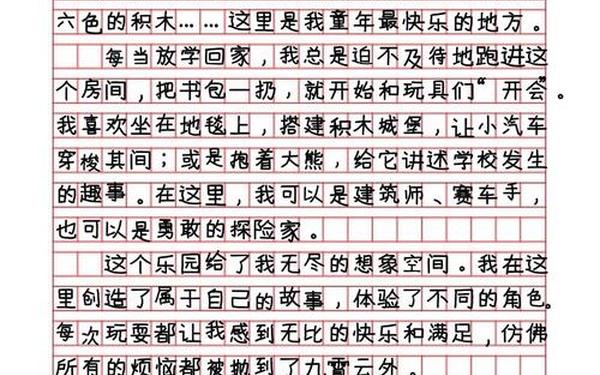 六色的积木……这里是我童年最快乐的地方。
每当放学回家，我总是迫不及待地跑进这
个房间，把书包一扔，就开始和玩具们“开会”。
我喜欢坐在地毯上，搭建积木城堡，让小汽车
穿梭其间；或是抱着大熊，给它讲述学校发生
的趣事。在这里，我可以是建筑师、赛车手，
也可以是勇敢的探险家。
这个乐园给了我无尽的想象空间。我在这
里创造了属于自己的故事，体验了不同的角色。
每次玩耍都让我感到无比的快乐和满足，仿佛
所有的烦恼都被抛到了九霄云外。